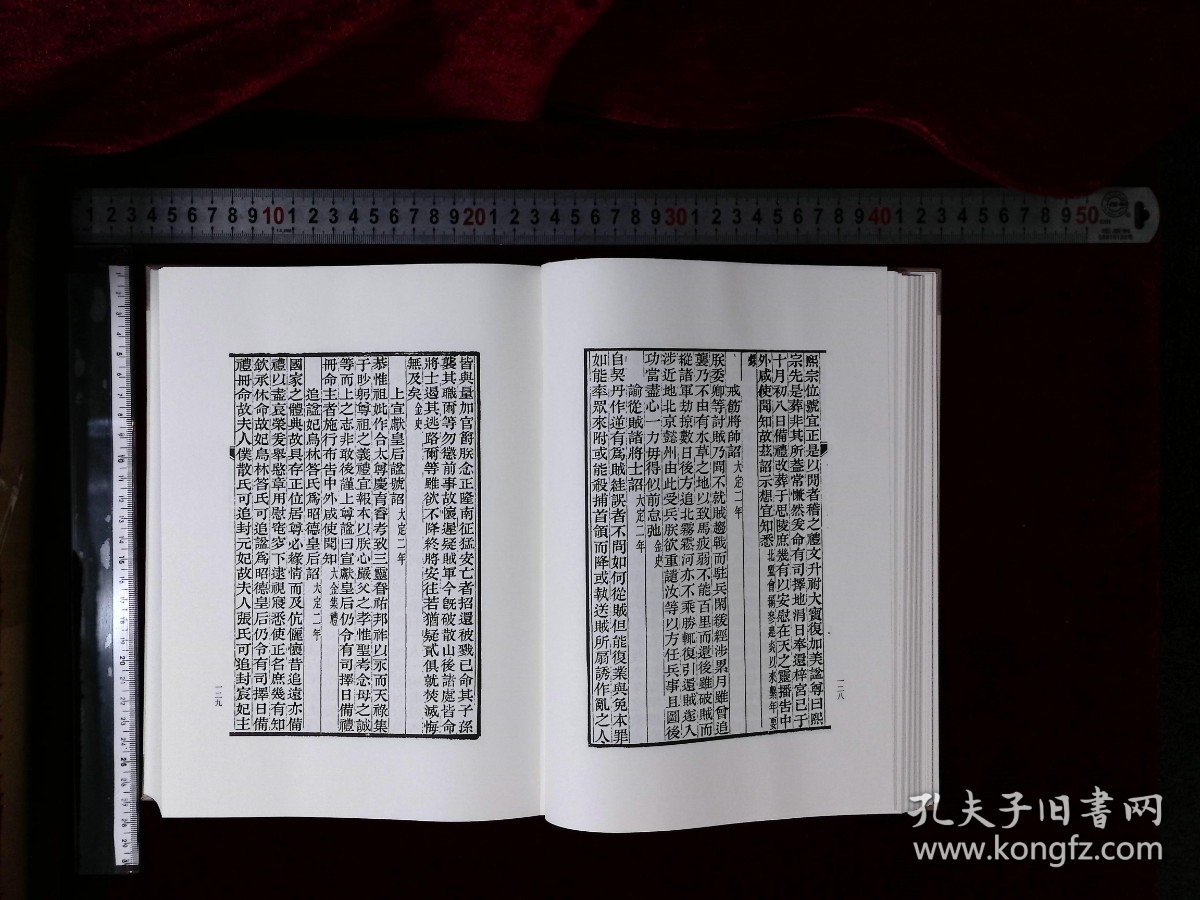 熙宗位號宜正是以閱者稽之禮文升祔大寶復加美諡尊曰熙
宗先是葬非其所蓋常慨然爰命有司擇地涓日奉遷梓宮已于
十月初八日備禮改葬于思陵庶幾有以安慰在天之靈播告中
外咸使聞知故茲詔示想宜知悉北盟會編
戒飭將帥詔大定二年
朕委卿等討賊乃聞不就賊趨戰而駐兵閑緩經涉累月雖曾追
襲乃不由有水草之地以致馬疲弱不能百里而還後雖破賊而
縱諸軍劫掠數日後方追北霧䨴河亦不乘勝輒復引還賊遂入
涉近地北京懿州由此受兵朕欲重譴汝等以方任兵事且圖後
功當盡心一力毋得似前怠弛金史
諭從賊諸將士詔大定二年
自契丹作逆有爲賊詿誤者不問如何從賊但能復業與免本罪
如能率眾來附或能殺捕首領而降或執送賊所扇誘作亂之人
一二八
皆與量加官爵朕念正隆南征猛安亡者招還被戮已命其子孫
襲其職爾等勿懲前事故懷遲疑賊軍今旣破散山後諸處皆命
將士遏其逃路爾等雖欲不降終將安往若猶疑貳俱就焚滅悔
無及矣金史
上宣獻皇后諡號詔大定二年
恭惟祖妣作合太尊慶育睿考致三靈眷祐邦祚以永而天祿集
于眇躬尊祖之義禮宜報本以朕心嚴父之孝惟聖考念母之誠
等而上之志非敢後謹上尊諡曰宣獻皇后仍令有司擇日備禮
冊命主者施行布告中外咸使聞知大金集禮
追諡妃烏林答氏爲昭德皇后詔大定二年
國家之體典故具存正位居尊必緣情而及伉儷懷昔追遠亦備
禮以盡哀榮爰舉愍章用慰窀穸下逮視寢悉使正名庶幾有知
欽承休命故妃烏林答氏可追諡爲昭德皇后仍令有司擇日備
禮冊命故夫人僕散氏可追封元妃故夫人張氏可追封宸妃主
一二九
1 2 3 4 5 6 7 8 9 10 1 2 3 4 5 6 7 8 9 20 1 2 3 4 5 6 7 8 9 30 1 2 3 4 5 6 7 8 9 40 1 2 3 4 5 6 7 8 9 50
孔夫子旧书网
www.kongfz.com